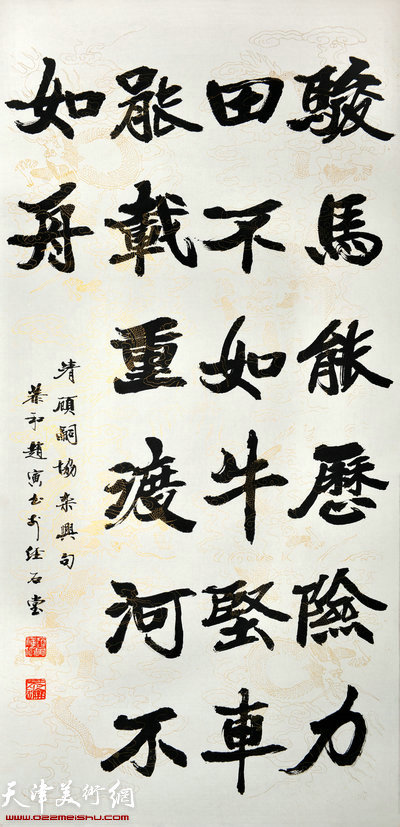 駿馬能歷險力
田不如牛堅車
能載重渡河不
如舟
清顧嗣協雜興句
趙寅书於经石堂
天津美術網
www.022meishu.com